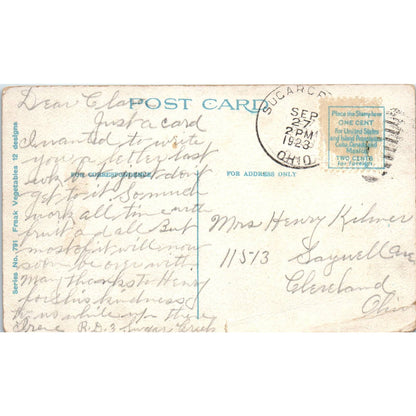 POST CARD
Dear Clara
Just a card
I wanted to write
you a letter last
week but didn't
get to it. So much
work all time with
fruit and all. But
most of it will now
soon be over with.
May thanks to Henry
for his kindness
to us while up there
Irene R.D. 3 Sugar Creek
FOR CORRESPONDENCE
FOR ADDRESS ONLY
Series No. 791 Freak Vegetables 12 designs
SUGARCR
SEP
27
2 PM
1923
OHIO
Place the Stamp here
ONE CENT
for United States
and Island Possessions
Cuba, Canada and
Mexico
TWO CENTS
for Foreign.
Mrs Henry Kilmer
11513 Saywell Ave
Cleveland
Ohio